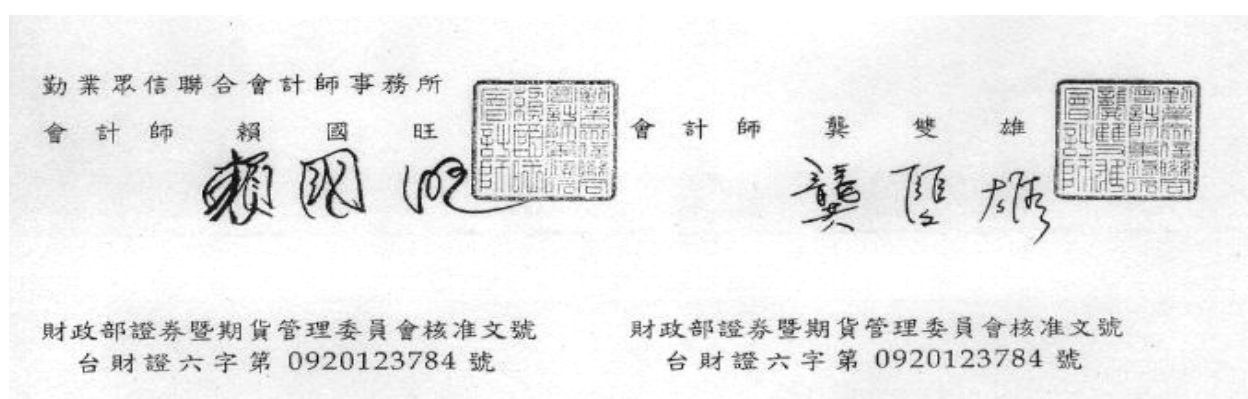 勤業眾信聯合會計師事務所
會計師 賴國旺
賴國旺
會計師 龔雙雄
龔雙雄
財政部證券暨期貨管理委員會核准文號
台財證六字第 0920123784 號
財政部證券暨期貨管理委員會核准文號
台財證六字第 0920123784 號